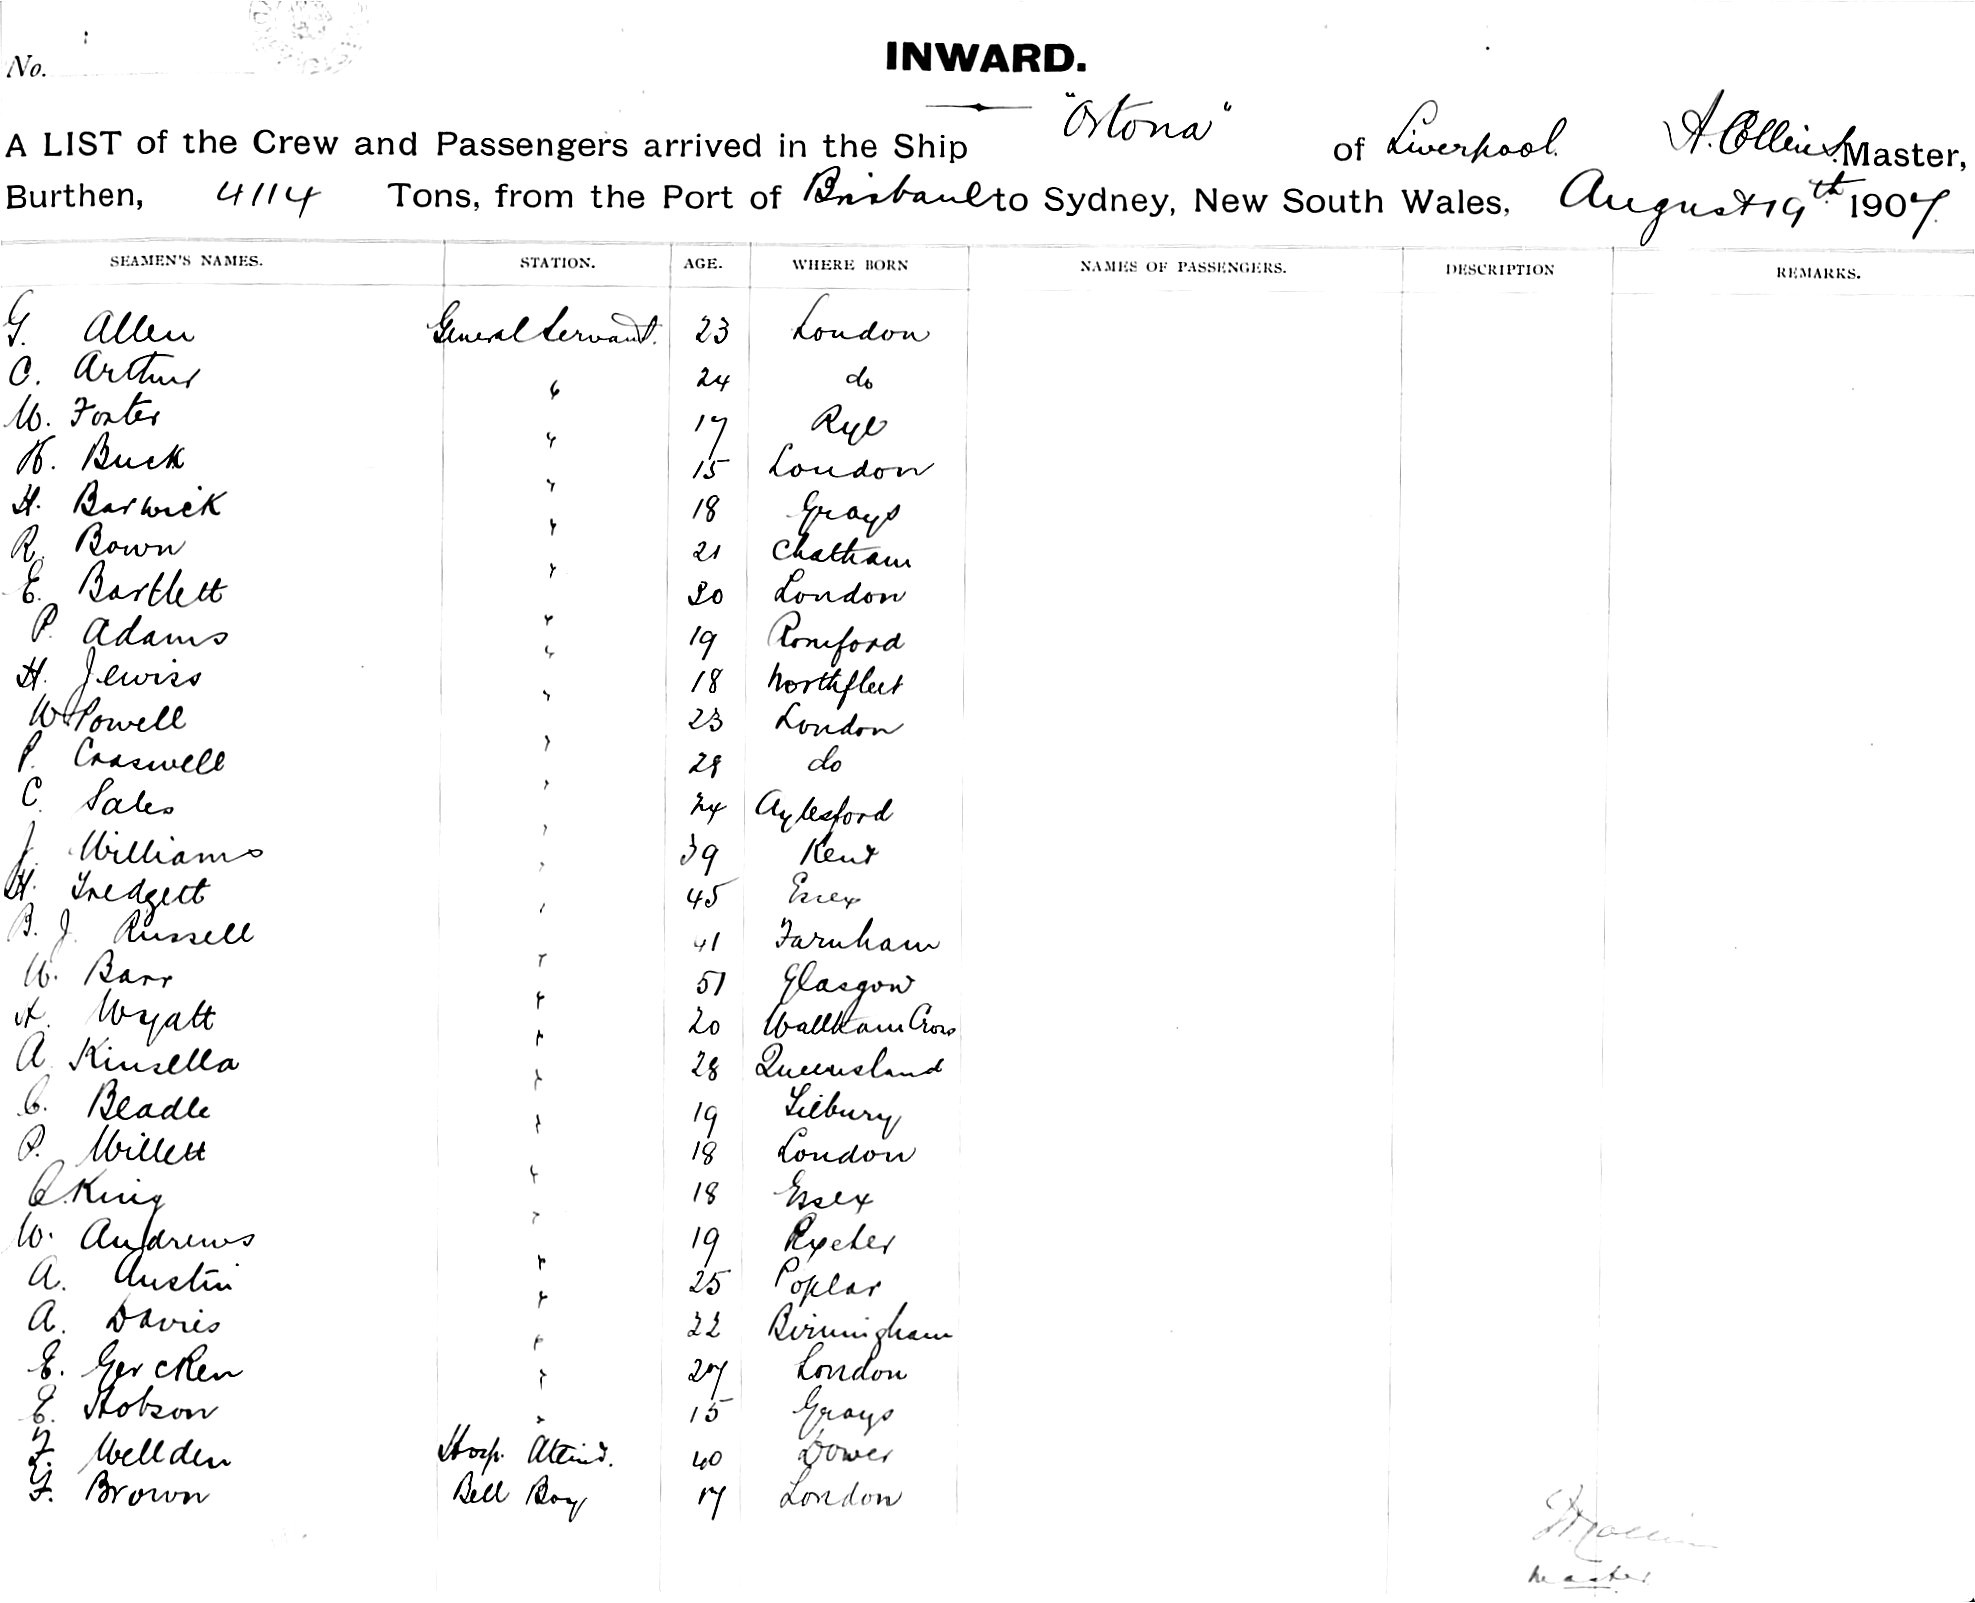 No.
INWARD.
A LIST of the Crew and Passengers arrived in the Ship "Ortona" of Liverpool. A. Collins. Master,
Burthen, 4114 Tons, from the Port of Brisbane to Sydney, New South Wales, August 19th 1907.
SEAMEN'S NAMES. STATION. AGE. WHERE BORN NAMES OF PASSENGERS. DESCRIPTION REMARKS.
G. Allen General Servant. 23 London
C. Arthur " 24 do
W. Foster " 17 Rye
H. Buck " 15 London
H. Barwick " 18 Grays
R. Bown " 21 Chatham
E. Bartlett " 30 London
P. Adams " 19 Romford
H. Jewiss " 18 Northfleet
W. Powell " 23 London
P. Craswell " 28 do
C. Sales " 24 Aylesford
J. Williams " 39 Kent
H. Tredgett " 45 Essex
B. J. Russell " 41 Farnham
W. Barr " 51 Glasgow
A. Wyatt " 20 Waltham Cross
A. Kinsella " 28 Queensland
C. Beadle " 19 Tilbury
P. Willett " 18 London
C. King " 18 Essex
W. Andrews " 19 Exeter
A. Austin " 25 Poplar
A. Davies " 22 Birmingham
E. Gercken " 27 London
E. Hobson " 15 Grays
F. Wellden Hosp. Attend. 40 Dover
F. Brown Bell Boy 17 London
A. Collins
Master